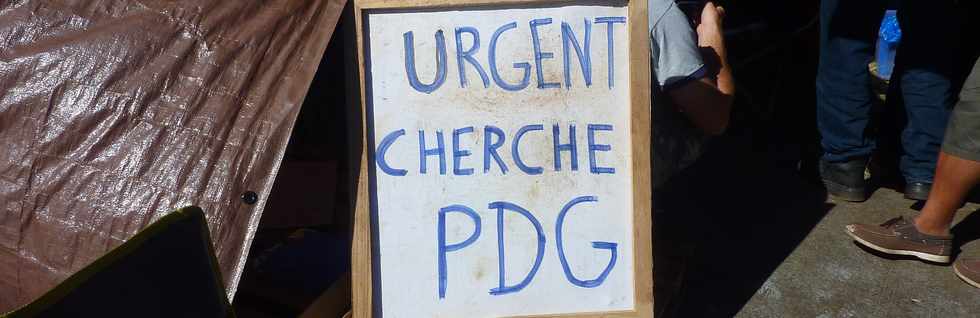 URGENT
CHERCHE
PDG